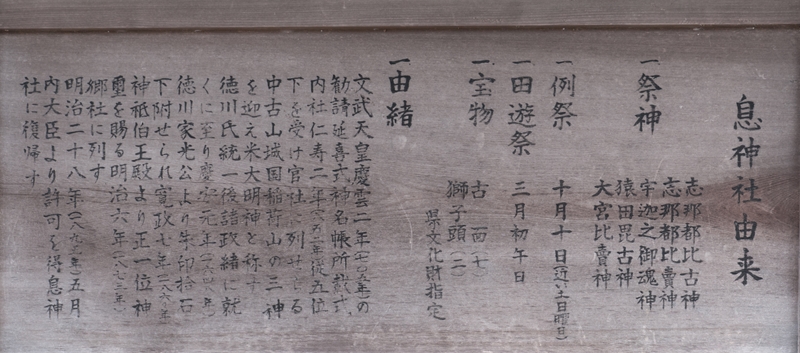 息神社由来
一祭神
志那都比古神
志那都比賣神
宇迦之御魂神
猿田毘古神
大宮比賣神
一例祭 十月十日(近い土日曜日)
一田遊祭 三月初午日
一宝物 古面(七)
獅子頭(二)
県文化財指定
一由緒
文武天皇慶雲二年(七〇五年)の
勧請延喜式神名帳所載式
内社仁寿二年(八五二年)従五位
下を受け官社に列せらる
中古山城国稲荷山の三神
を迎え米大明神と称す
徳川氏統一後諸政緒に就
くに至り慶安元年(一六四八年)
徳川家光公より朱印拾石
下附せられ寛政七年
神祇伯王殿より正一位神
璽を賜る明治六年(一八七三年)
郷社に列す
明治二十八年(一八九五年)五月
内大臣より許可を得息神
社に復帰す